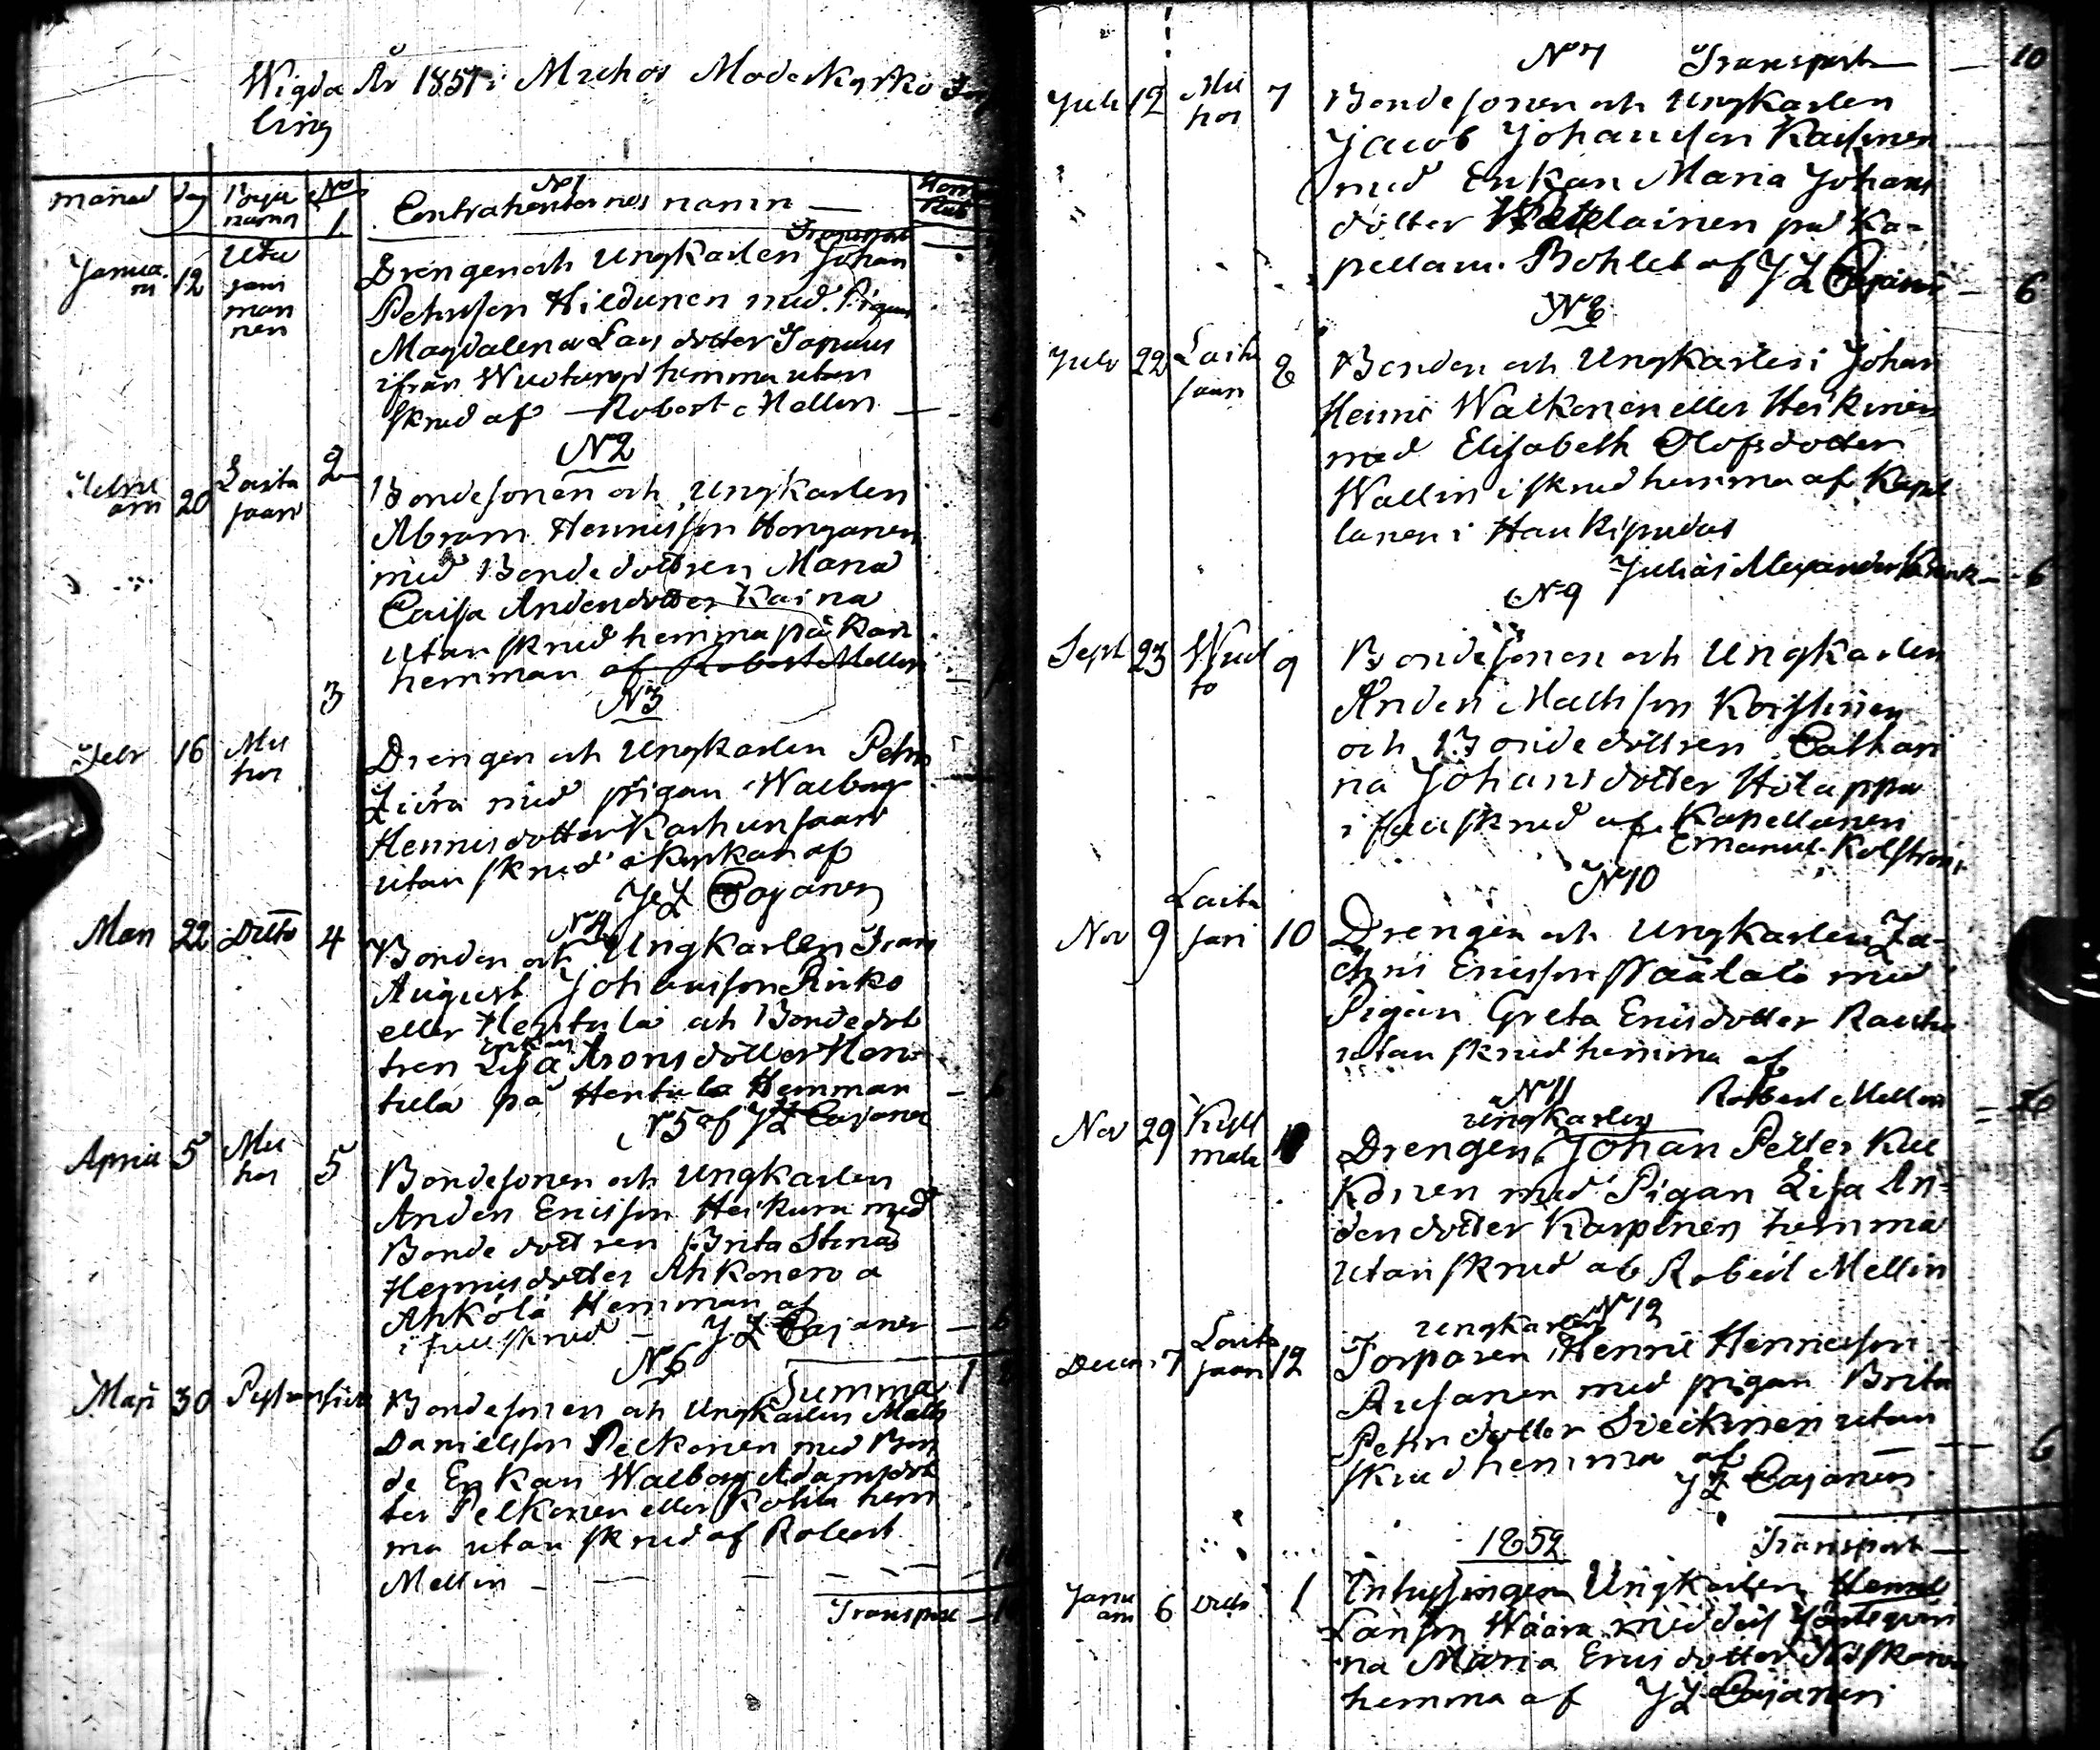 Wigda År 1851 i Muhos Moderkyrko
ling
månad dag Byie namn No Contrahenternes namn
No 1
1
Transport
Januari 12 Utajärvi
Drengen och Ungkarlen Johan
Petersson Hildunen med Pigan
Magdalena Lars dotter
ifrån hemma utan
skrud af Robert Mellin
No 2
20 Laitasaari 2 Bondesonen och Ungkarlen
Abram Henricsson Honganen
med Bondedottren Maria
Caisa Andersdotter Kaina
utan skrud hemma på
hemman af Robert Mellin
3
No 3
Febr 16 Muhos Drengen och Ungkarlen Petter
med pigan Walborg
Henricsdotter Karhunsaari
utan skrud i kyrkan af
J Z Cajanen
No 4
Mars 22 Ditto 4 Bonden och Ungkarlen Frans
August Johansson Pirko
eller Hentula och Bondedot
tren Enkan Lisa Aronsdotter Hen
tula på Hentula Hemman
No 5 af J Z Cajanen
April 5 Muhos 5 Bondesonen och Ungkarlen
Anders Ericsson Heikura med
Bonde dottren Brita Stina
Henricsdotter Ahkonen a
Ahkola Hemman af
i full skrud J Z Cajanen
No 6
Summa
Maji 30 Bondesonen och Ungkarlen Matts
Danielsson Pelkonen med Bon
de Enkan Walborg Adamsdot
ter Pelkonen eller Kohta hem
ma utan skrud af Robert
Mellin
Transport
No 7 Transport 10
Juli 12 Muhos 7 Bondesonen och Ungkarlen
Jacob Johansson Kaisinen
med Enkan Maria Johans
dotter på Ka-
pellans Bohlet af J Z Cajanen 6
No 8
Juli 22 Laitasaari 8 Bonden och Ungkarlen Johan
Henric Walkonen eller Heikinen
med Elisabeth Olofsdotter
Wallin i skrud hemma af Kapel
lanen i Haukipudas
Julius Alexander 6
No 9
Sept 23 9 Bondesonen och Ungkarlen
Anders Mattsson Koistinen
och Bondedottren Cathari
na Johansdotter Holappa
i full skrud af Kapellanen
Emanuel Kolström
No 10
Nov 9 Laitasari 10 Drengen och Ungkarlen Za-
chris Ericsson Wäätälä med
Pigan Greta Ericsdotter Rautio
utan skrud hemma af
Robert Mellin
No 11
Ungkarlen
Nov 29 11 Drengen Johan Petter Kuc
konen med Pigan Lisa An-
dersdotter Karpinen hemma
utan skrud af Robert Mellin
No 12
Ungkarlen
Decem 7 Laitasaari 12 Torparen Henric Henricsson
med pigan Brita
Petersdotter utan 6
skrud hemma af
J Z Cajanen
1852 Transport
Januari 6 Dito 1 Inhysingen Ungkarlen Henric
Larsson Waara med
na Maria Ericsdotter
hemma af J Z Cajanen